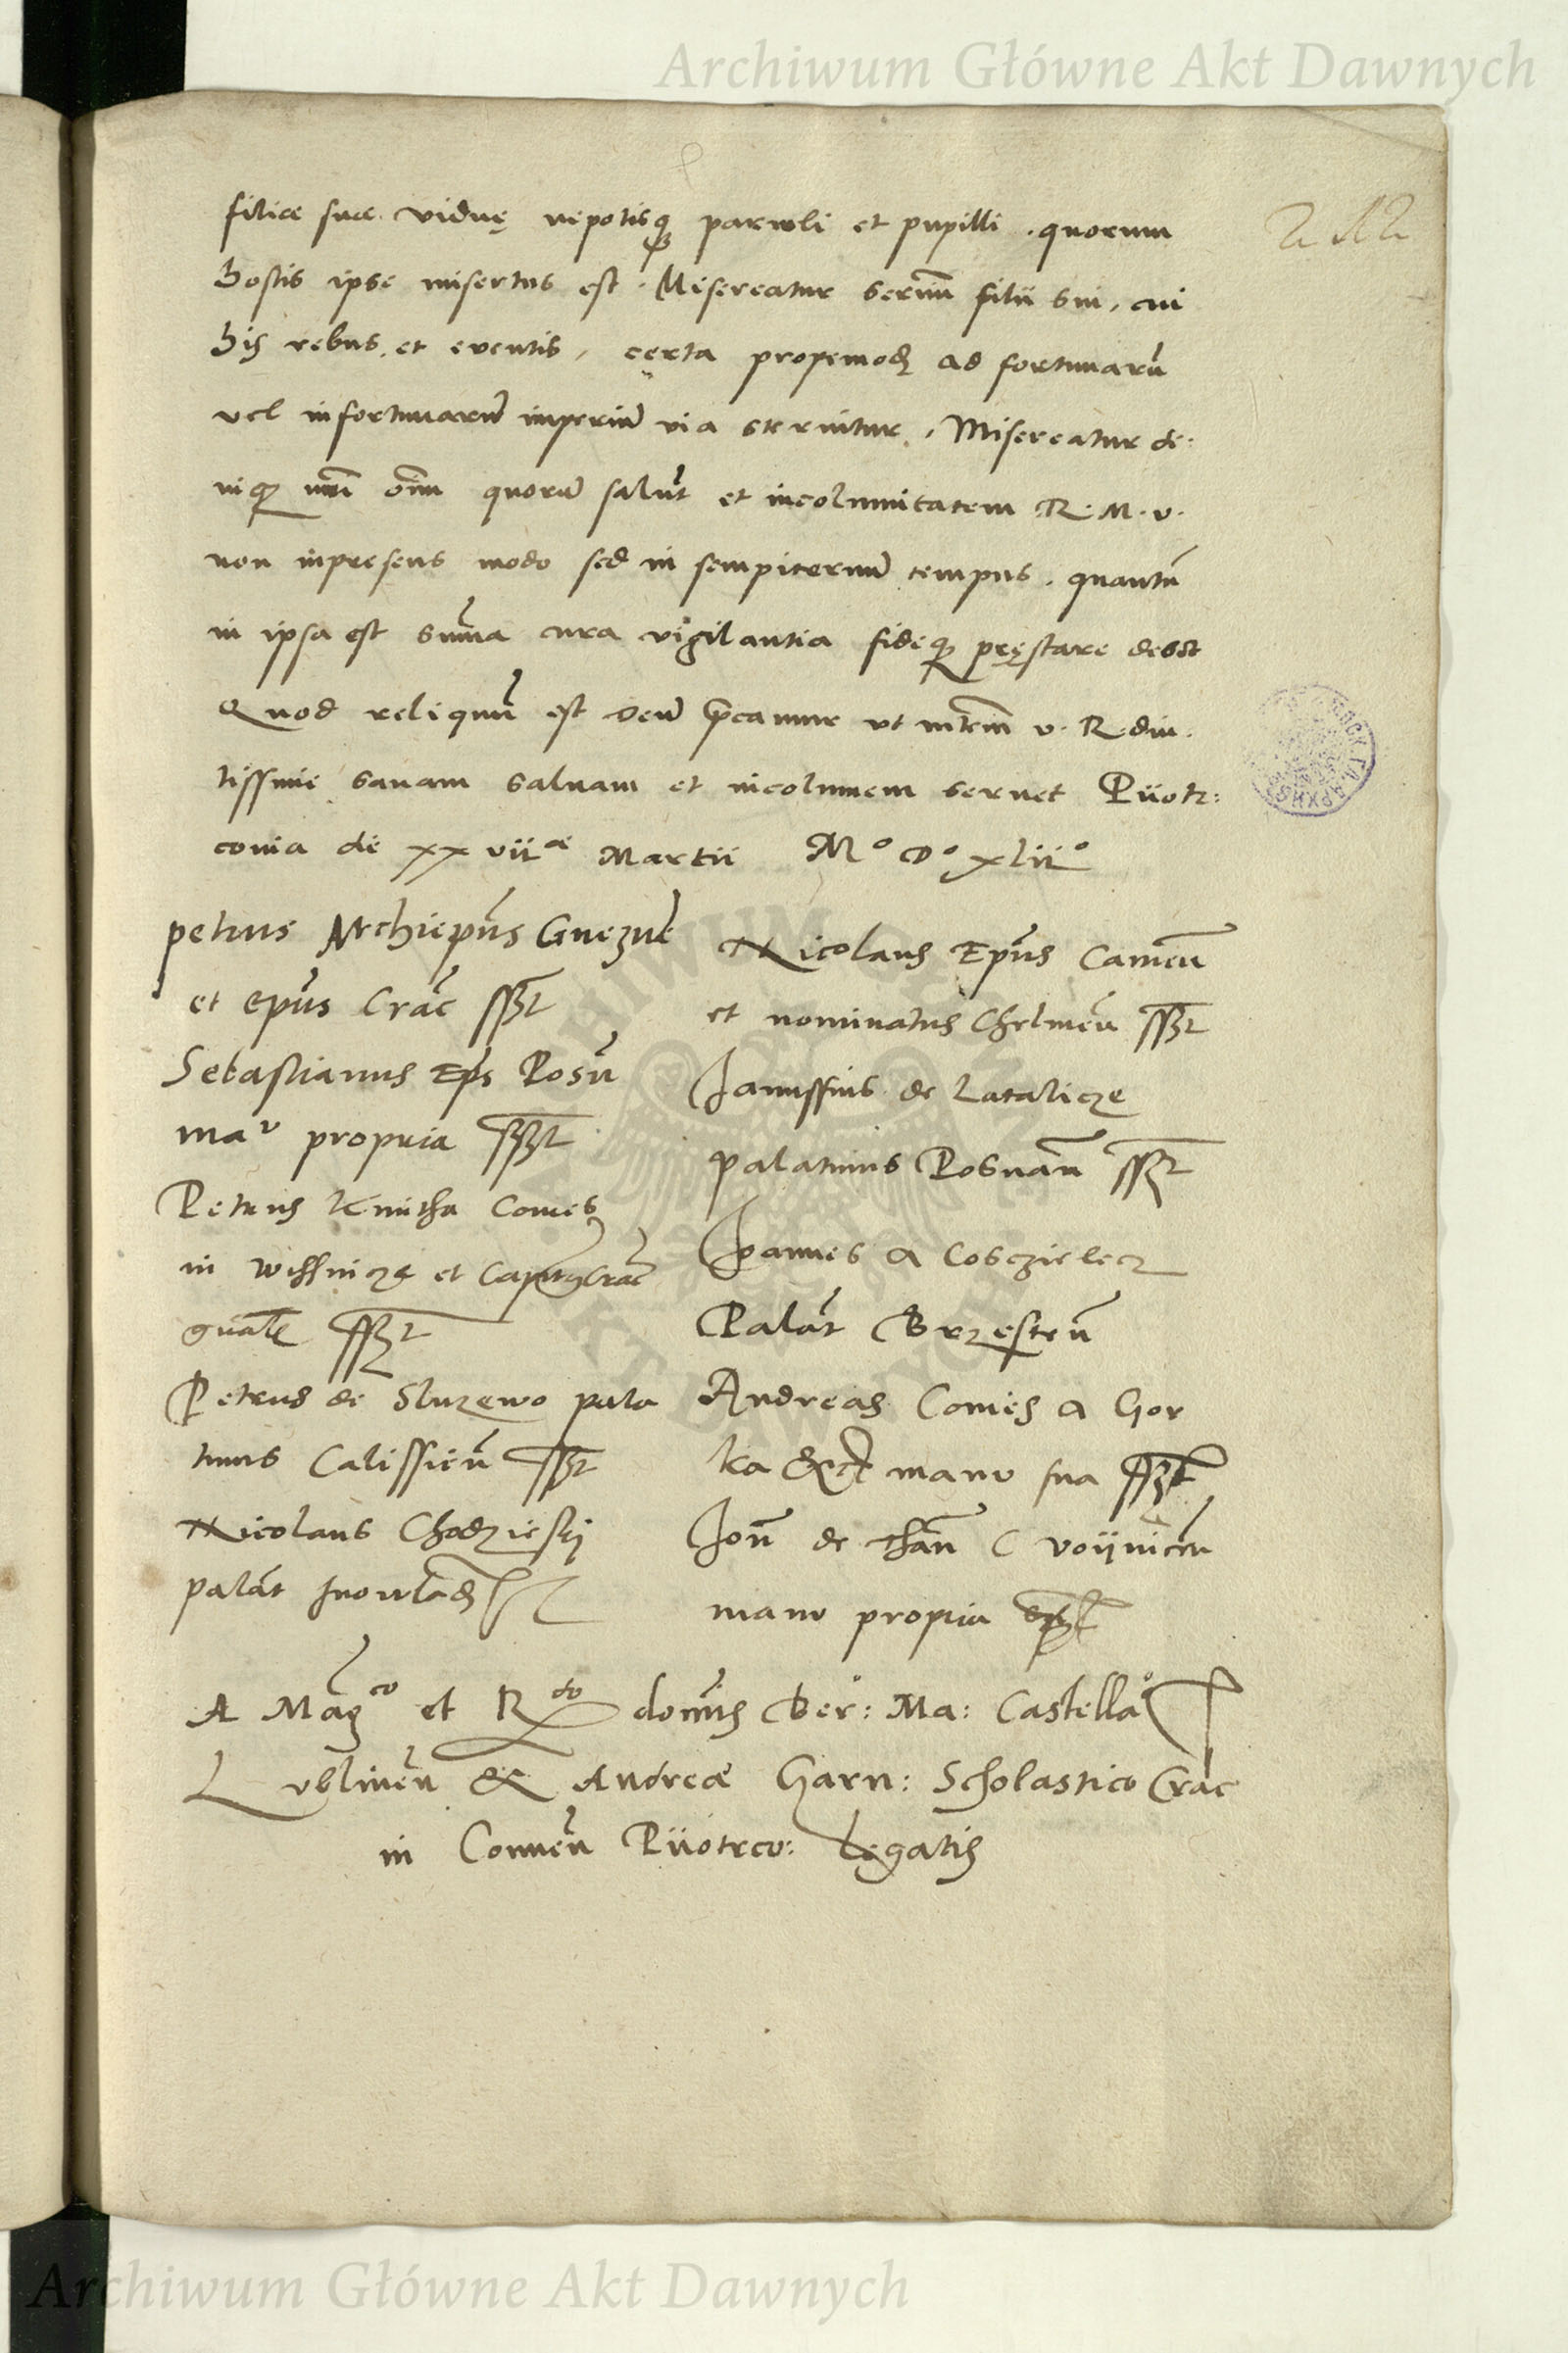 Archiwum Główne Akt Dawnych
filiæ suæ viduę nepotisq̃ parwli et pupilli . quorum
hostis ipse misertus est . Misereatur sermi filii sui , cui
his rebus et eventis , certa propemodũ ad fortunarũ
vel infortunarũ imperiũ via sternitur , Misereatur de:
niq̃ nr̃i om̃iu quorũ salutẽ et incolumitatem R. M. v.
non inpresens modo sed in sempiternũ tempus . quantũ
in ipsa est sum̃a cura vigilantia fideq̃ pręstare debet
Quod reliquũ est deũ p̃camur ut m̃tem v. R. diu.
tissime sanam saluam et incolumem seruet Piiotr:
conia de xxviiæ Martii Mº Dº xliiº
petrus Archiep̃us Gnezneñ
et ep̃us Crac̃ sszt
Sebastianus Ep̃s Posñ
maᵛ propria sszt
Petrus Kmitha Comes
in Wissnicze et Capit Crac̃
gñale sszt
Petrus de Sluzewo pala
tinus Calissieñ sszt
Nicolaus Chodzieski
palat̃ Inowlad
Nicolaus Ep̃us Cameñ
et nominatus Chelmeñ sszt
Janussius de Latalicze
palatinus Posnañ sszt
Joannes a Cosczielecz
Palat̃ Brzesteñ
Andreas Comes a Gor
ka manv sua sszt
Joañ de Thañ C voijniceñ
manv propria
A Mag̃co et Rdo dom̃is Ber: Ma: Castellaº
Lublineñ & Andreæ Czarn: Scholastico Crac
in Conueñ Piiotrco: Legatis
Archiwum Główne Akt Dawnych